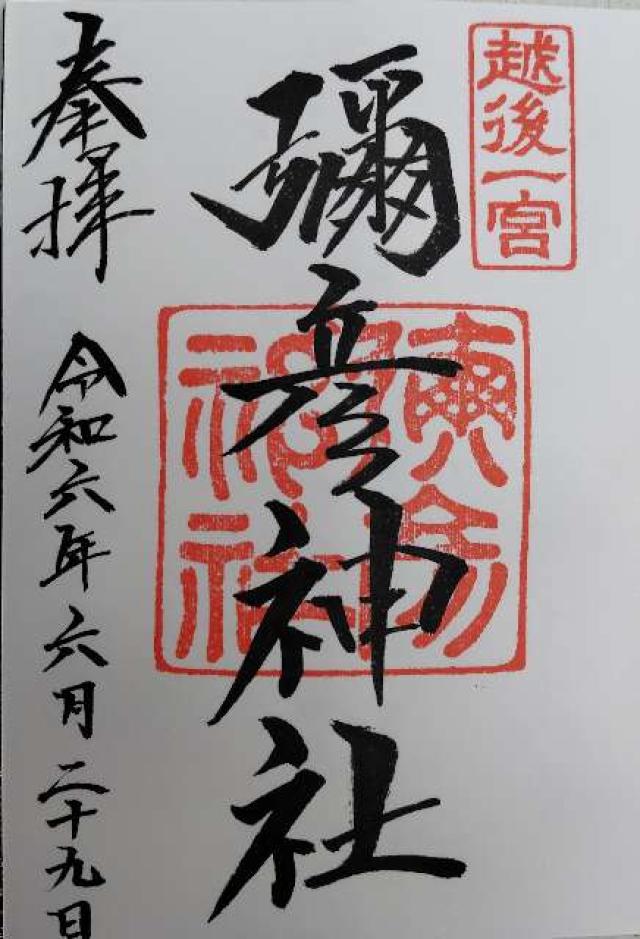 越後一宮
彌彦神社
奉拝
令和六年六月二十九日